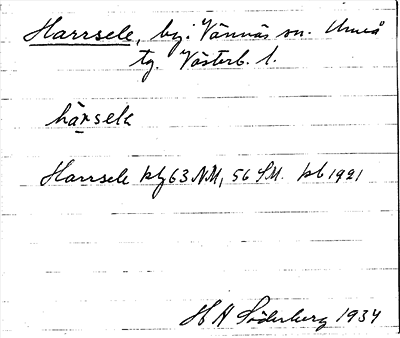 Harrsele, by i Vännäs sn. Umeå
tg. Västerb. l.
hàrsele
Harrsele kbl 63 NM, 56 SM. kb 1921
H H Söderberg 1934